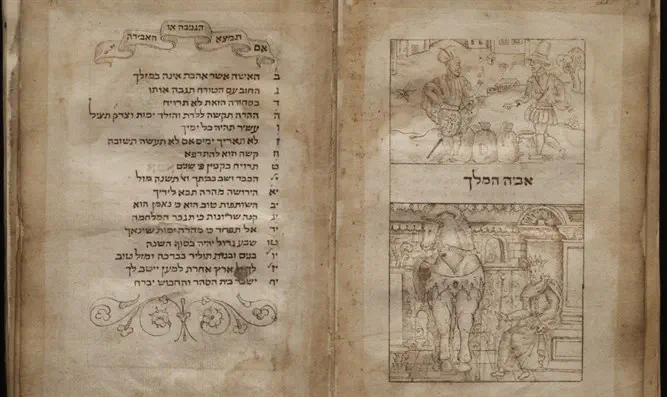 אם תמצא הגנבה או האבידה
ב האשה אשר אהבת אינה במזלך
ג החוב עם הטורח תגבה אותו
ד בסחורה הזאת לא תרויח
ה ההרה תקשה ללדת והולד ימות וצדק תציל
ו עשיר תהיה כל ימיך
ז לא תאריך ימים אם לא תעשה תשובה
ח קשה הוא להתרפא
ט תרויח בקנין שלם
י הכבד ושב בביתך תשנה מזל
יא הירושה מהרה תבא לידיך
יב השותפות טוב הוא כי נאמן הוא
יג קנה שריונות כי תגבר המלחמה
יד אל תפחד כי מהרה ימות שונאך
טו שבע גדול יהיה בסוף השנה
יו בנים ובנות תוליד בברכה ומזל טוב
יז ארץ אחרת למען ייטב לך
יח ישבר בית הסהר והחבוש יברח
אביה המלך